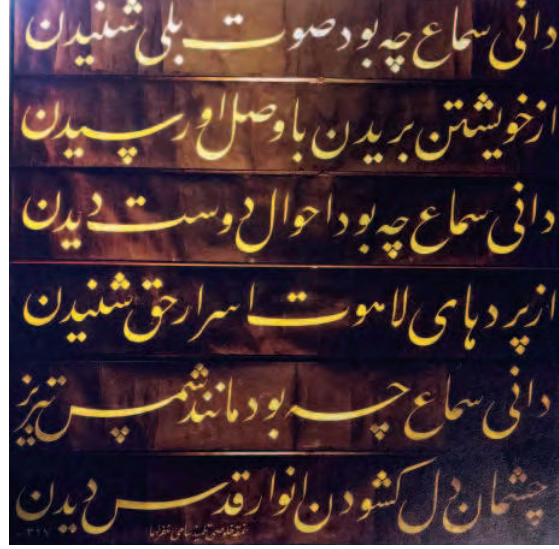 دانی سماع چه بود صوت بلی شنیدن
از خویشتن بریدن با وصل او رسیدن
دانی سماع چه بود احوال دوست دیدن
از پردهای لاهوت اسرار حق شنیدن
دانی سماع چه بود مانند شمس تبریز
چشمان دل کشودن انوار قدس دیدن